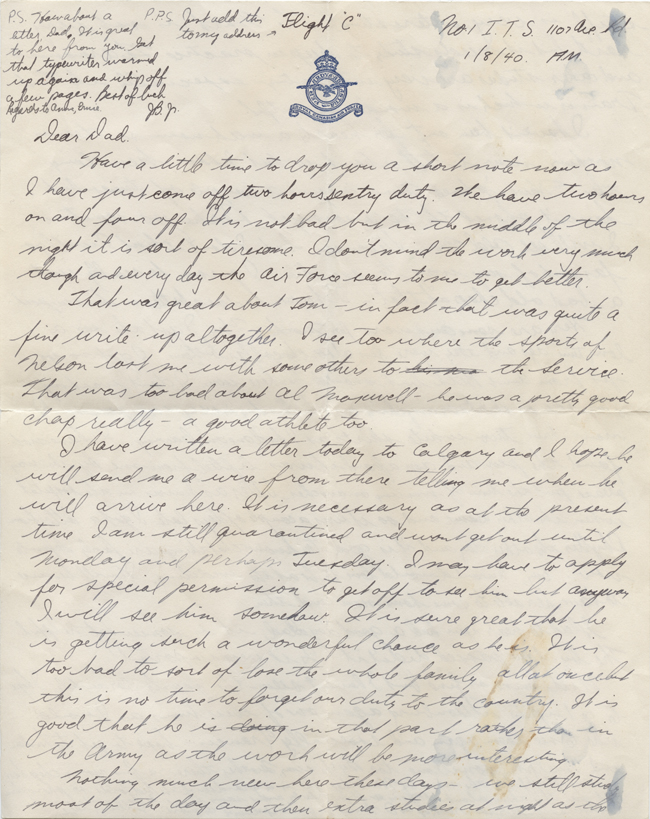 P.S. How about a
letter Dad, It is great
to hear from you. Get
that typewriter warmed
up again and whip off
a few pages. Best of luck
Regards to Anne, Ernie
J.B. Jr.
P.P.S Just add this
to my address → Flight "C"
No 1 I.T.S. 1107 Ave. Rd.
1/8/40. AM
Dear Dad.
Have a little time to drop you a short note now as
I have just come off two hours sentry duty. We have two hours
on and four off. It is not bad but in the middle of the
night it is sort of tiresome. I don't mind the work very much
though and every day the Air Force seems to me to get better.
That was great about Tom – in fact that was quite a
fine write-up altogether. I see too where the sports of
Nelson lost me with some others to the Service.
That was too bad about Al Maxwell – he was a pretty good
chap really – a good athlete too.
I have written a letter today to Calgary and I hope he
will send me a wire from there telling me when he
will arrive here. It is necessary as at the present
time I am still quarantined and wont get out until
Monday and perhaps Tuesday. I may have to apply
for special permission to get off to see him but anyway
I will see him somehow. It is sure great that he
is getting such a wonderful chance as he is. It is
too bad to sort of lose the whole family all at once but
this is no time to forget our duty to the country. It is
good that he is doing in that part rather than in
the Army as the work will be more interesting.
Nothing much new here these days – we still study
most of the day and then extra studies at night as the